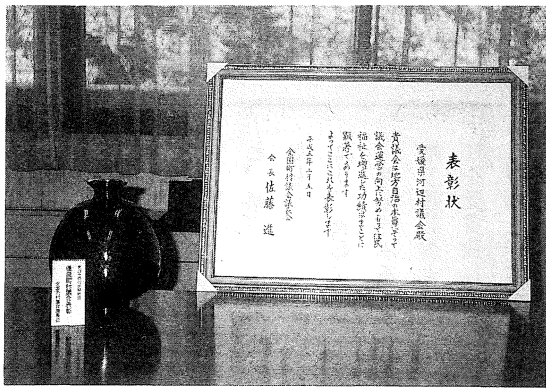 表彰状
愛媛県河辺村議会殿
貴議会は地方自治の本旨にそって
議会運営の向上に努めもって住民
福祉を増進した功績はまことに
顕著であります
よってここにこれを表彰します
平成三年二月五日
全国町村議会議長会
会長 佐藤 進